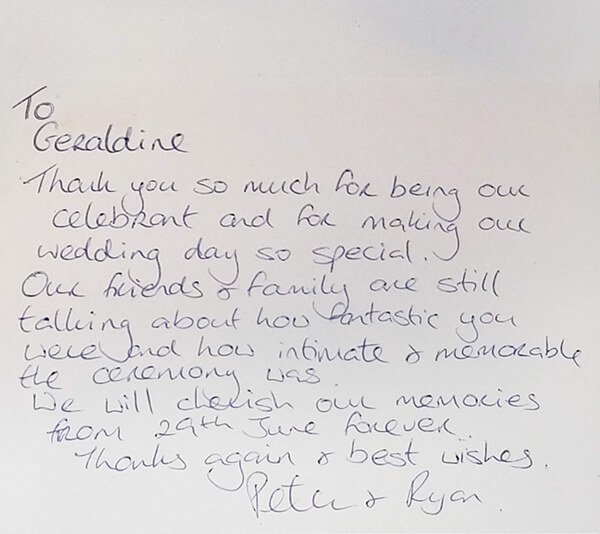 To
Geraldine
Thank you so much for being our
celebrant and for making our
wedding day so special.
Our friends & family are still
talking about how fantastic you
were and how intimate & memorable
the ceremony was.
We will cherish our memories
from 29th June forever.
Thanks again & best wishes.
Peter & Ryan